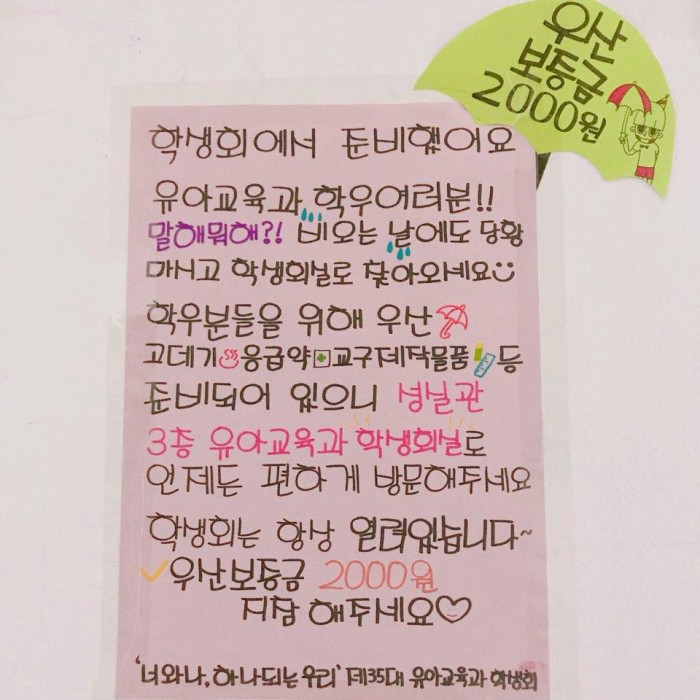 우산
보증금
2000원
학생회에서 준비했어요
유아교육과 학우여러분!!
말해뭐해?! 비오는 날에도 당황
마시고 학생회실로 찾아오세요
학우분들을 위해 우산
고데기 응급약 교구제작물품 등
준비되어 있으니 성실관
3층 유아교육과 학생회실로
언제든 편하게 방문해주세요
학생회는 항상 열려있습니다~
우산보증금 2000원
지참 해주세요♡
'너와나, 하나되는 우리' 제35대 유아교육과 학생회